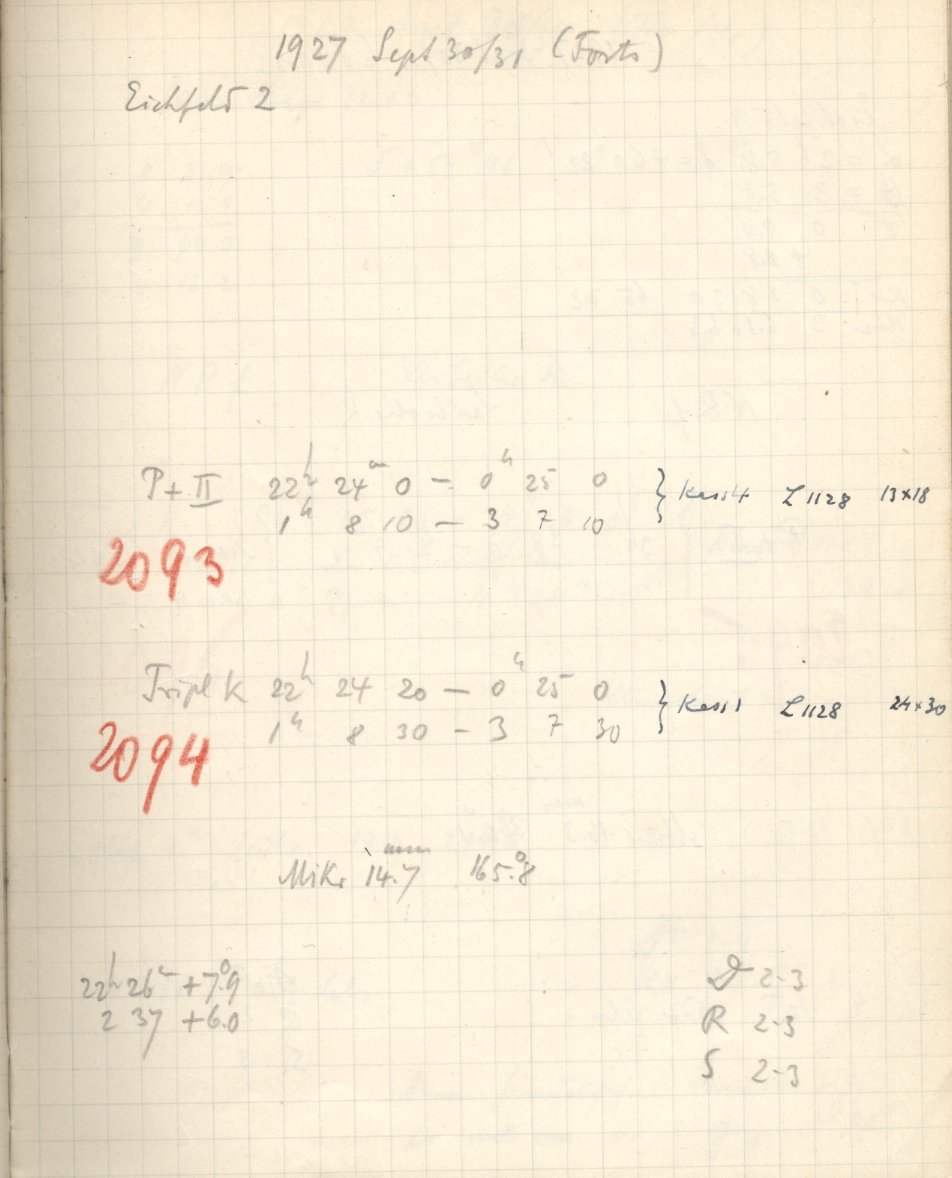 1927 Sept 30/31 (Forts)
Eichfeld 2
P + II 22h 24m 0 – 0h 25 0 } Kass 4 L 1128 13x18
1h 8 10 – 3 7 10
2093
Tripl K 22h 24 20 – 0h 25 0 } Kass 1 L 1128 24x30
1h 8 30 – 3 7 30
2094
Mikr 14.7mm 165.°8
22h 26m +7.°9 D 2-3
2 37 +6.0 R 2-3
S 2-3